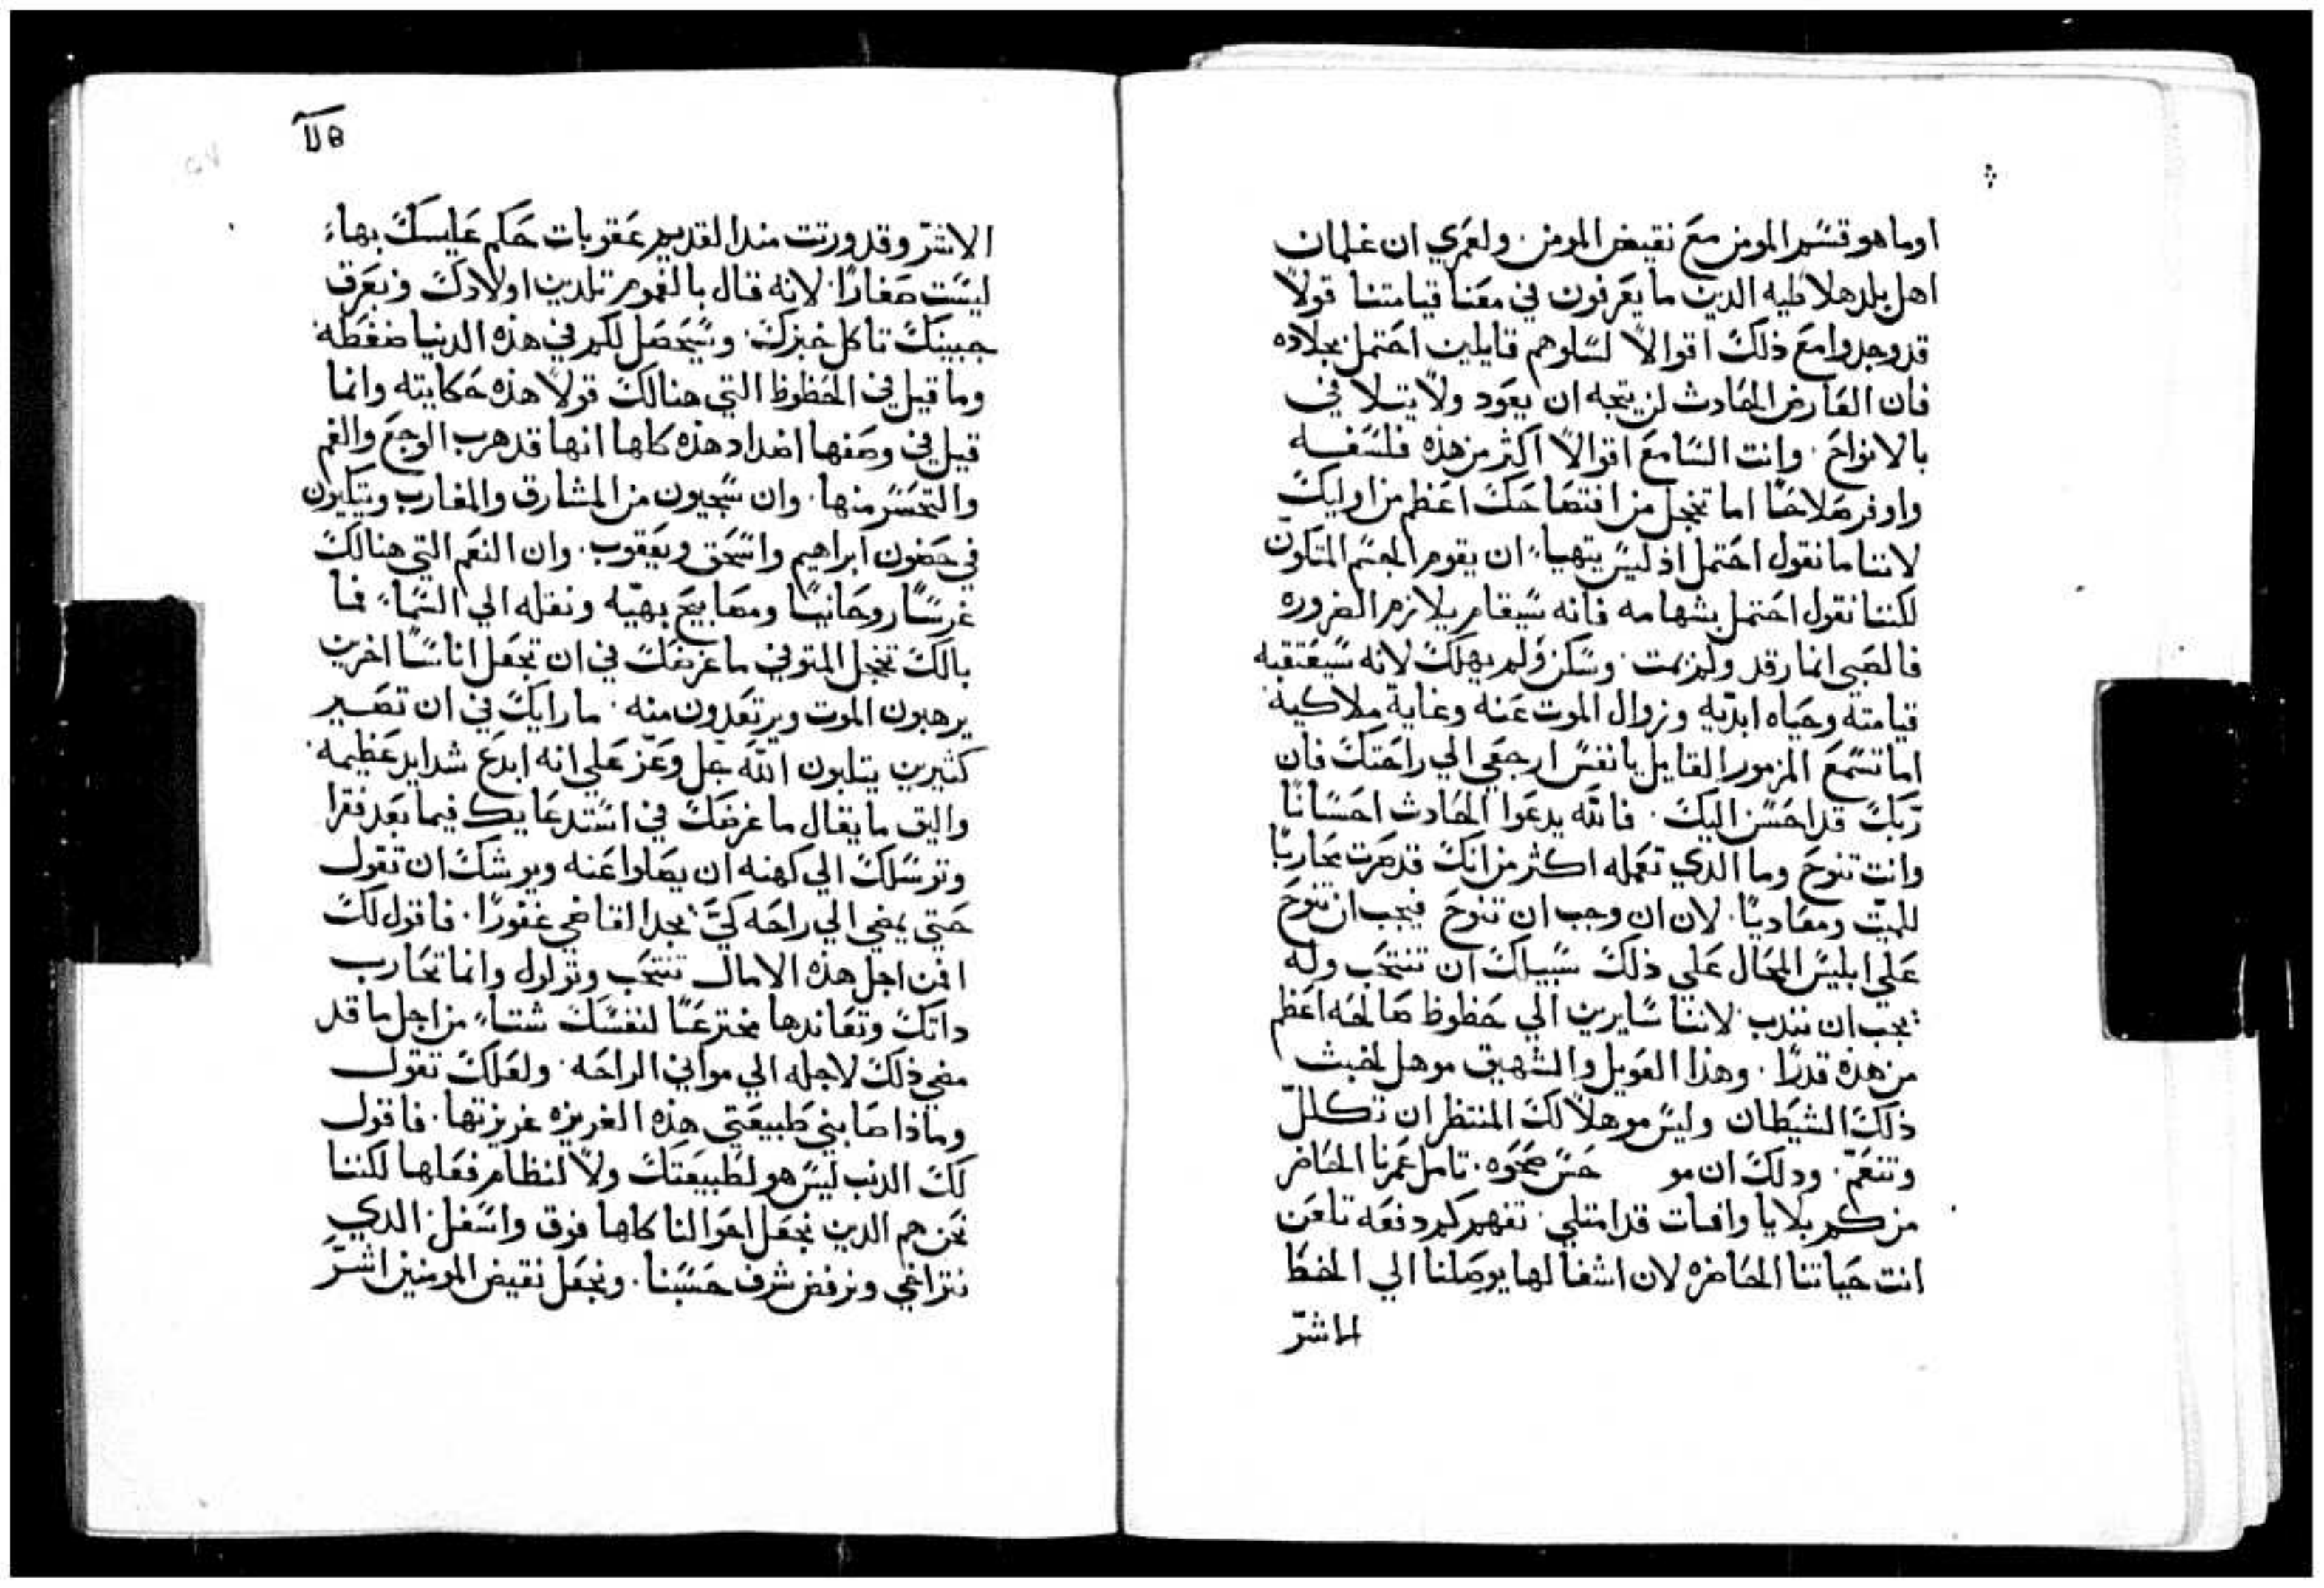 اوما هو قسم المومن مع نقيض المومن. ولعمري ان غلمان
اهل بلد هلاطيه الدين ما يعرفون في معنا قيامتنا قولاً
قد وجدوا مع ذلك اقوالاً لسلوهم قايلين احتمل بجلاده
فان العارض الحادث لن يتجه ان يعود ولا يتلا في
بالانواح. وانت السامع اقوالاً اكثر من هذه فلسفه
واوفر صلاحًا اما تخجل من افتضاحك اعظم من اوليك
لاننا ما نقول احتمل اذ ليس يتهياء ان يقوم الجسم المتكون
لكننا نقول احتمل بشهامه فانه سيقام بلازم الضروره
فالصبي انما رقد ولم يمت. وسكن ولم يهلك لانه سيعتقبه
قيامته وحياه ابديه وزوال الموت عنه وغاية ملاكيه
اما تسمع المزمور القايل يا نفس ارجعي الي راحتك فان
ربك قد احسن اليك. فالله يدعوا الحادث احسانًا
وانت تنوح وما الدي تعمله اكثر من انك قد صرت محاربًا
للميت ومعاديًا. لان ان وجب ان تنوح فيجب ان تنوح
علي ابليس المحال علي ذلك سبيلك ان تنتحب وله
يجب ان نندب لاننا سايرين الي حظوظ صالحه اعظم
من هذه قدرًا. وهذا العويل والشهيق موهل لخبث
ذلك الشيطان وليس موهلاً لك المنتظر ان تكلل
وتتنعم. ودلك ان مو حسن صحوه. تامل عمرنا الحاضر
من كم بلايا وافات قد امتلي. تفهم كم دفعه تلعن
انت حياتنا الحاضره لان اشغالها يوصلنا الي الحظ
الاشر
الاشر وقد ورتت مند القديم عقوبات حكم عليسك بهاء
ليست صغارًا. لانه قال بالغموم تلدين اولادك وبعرق
جبينك تاكل خبزك. وسيحصل لكم في هذه الدنيا ضغطه
وما قيل في الحظوظ التي هنالك قولاً هذه حكايته وانما
قيل في وصفها اضداد هذه كلها انها قد هرب الوجع والغم
والتحسر منها. وان سيجيون من المشارق والمغارب ويتكيون
في حضون ابراهيم واسحق ويعقوب. وان النعم التي هنالك
غرسًا روحانيًا ومصابيح بهيه ونقله الي السماء فما
بالك تخجل المتوفي ما غرضك في ان تجعل اناسًا اخرين
يرهبون الموت ويرتعدون منه. ما رايك في ان تصير
كثيرين يتلبون الله جل وعز علي انه ابدع شدايد عظيمه
واليق ما يقال ما غرضك في استدعايك فيما بعد فقرا
وتوسلك الي كهنه ان يصلوا عنه ويوشك ان تقول
حتي يمضي الي راحه كي يجد القاضي غفورًا. فاقول لك
افمن اجل هذه الامال تنتحب وتولول وانما تحارب
داتك وتعاندها مخترعًا لنفسك شتاء من اجل ما قد
مضي ذلك لاجله الي مواني الراحه. ولعلك تقول
وماذا صابني طبيعتي هذه الغريزه غريزتها. فاقول
لك الدنب ليس هو لطبيعتك ولا لنظام فعلها لكننا
نحن هم الدين نجعل احوالنا كلها فوق واسفل. الدي
نتراخي ونرفض شرف حسبنا. ونجعل نقيض المومنين اشر